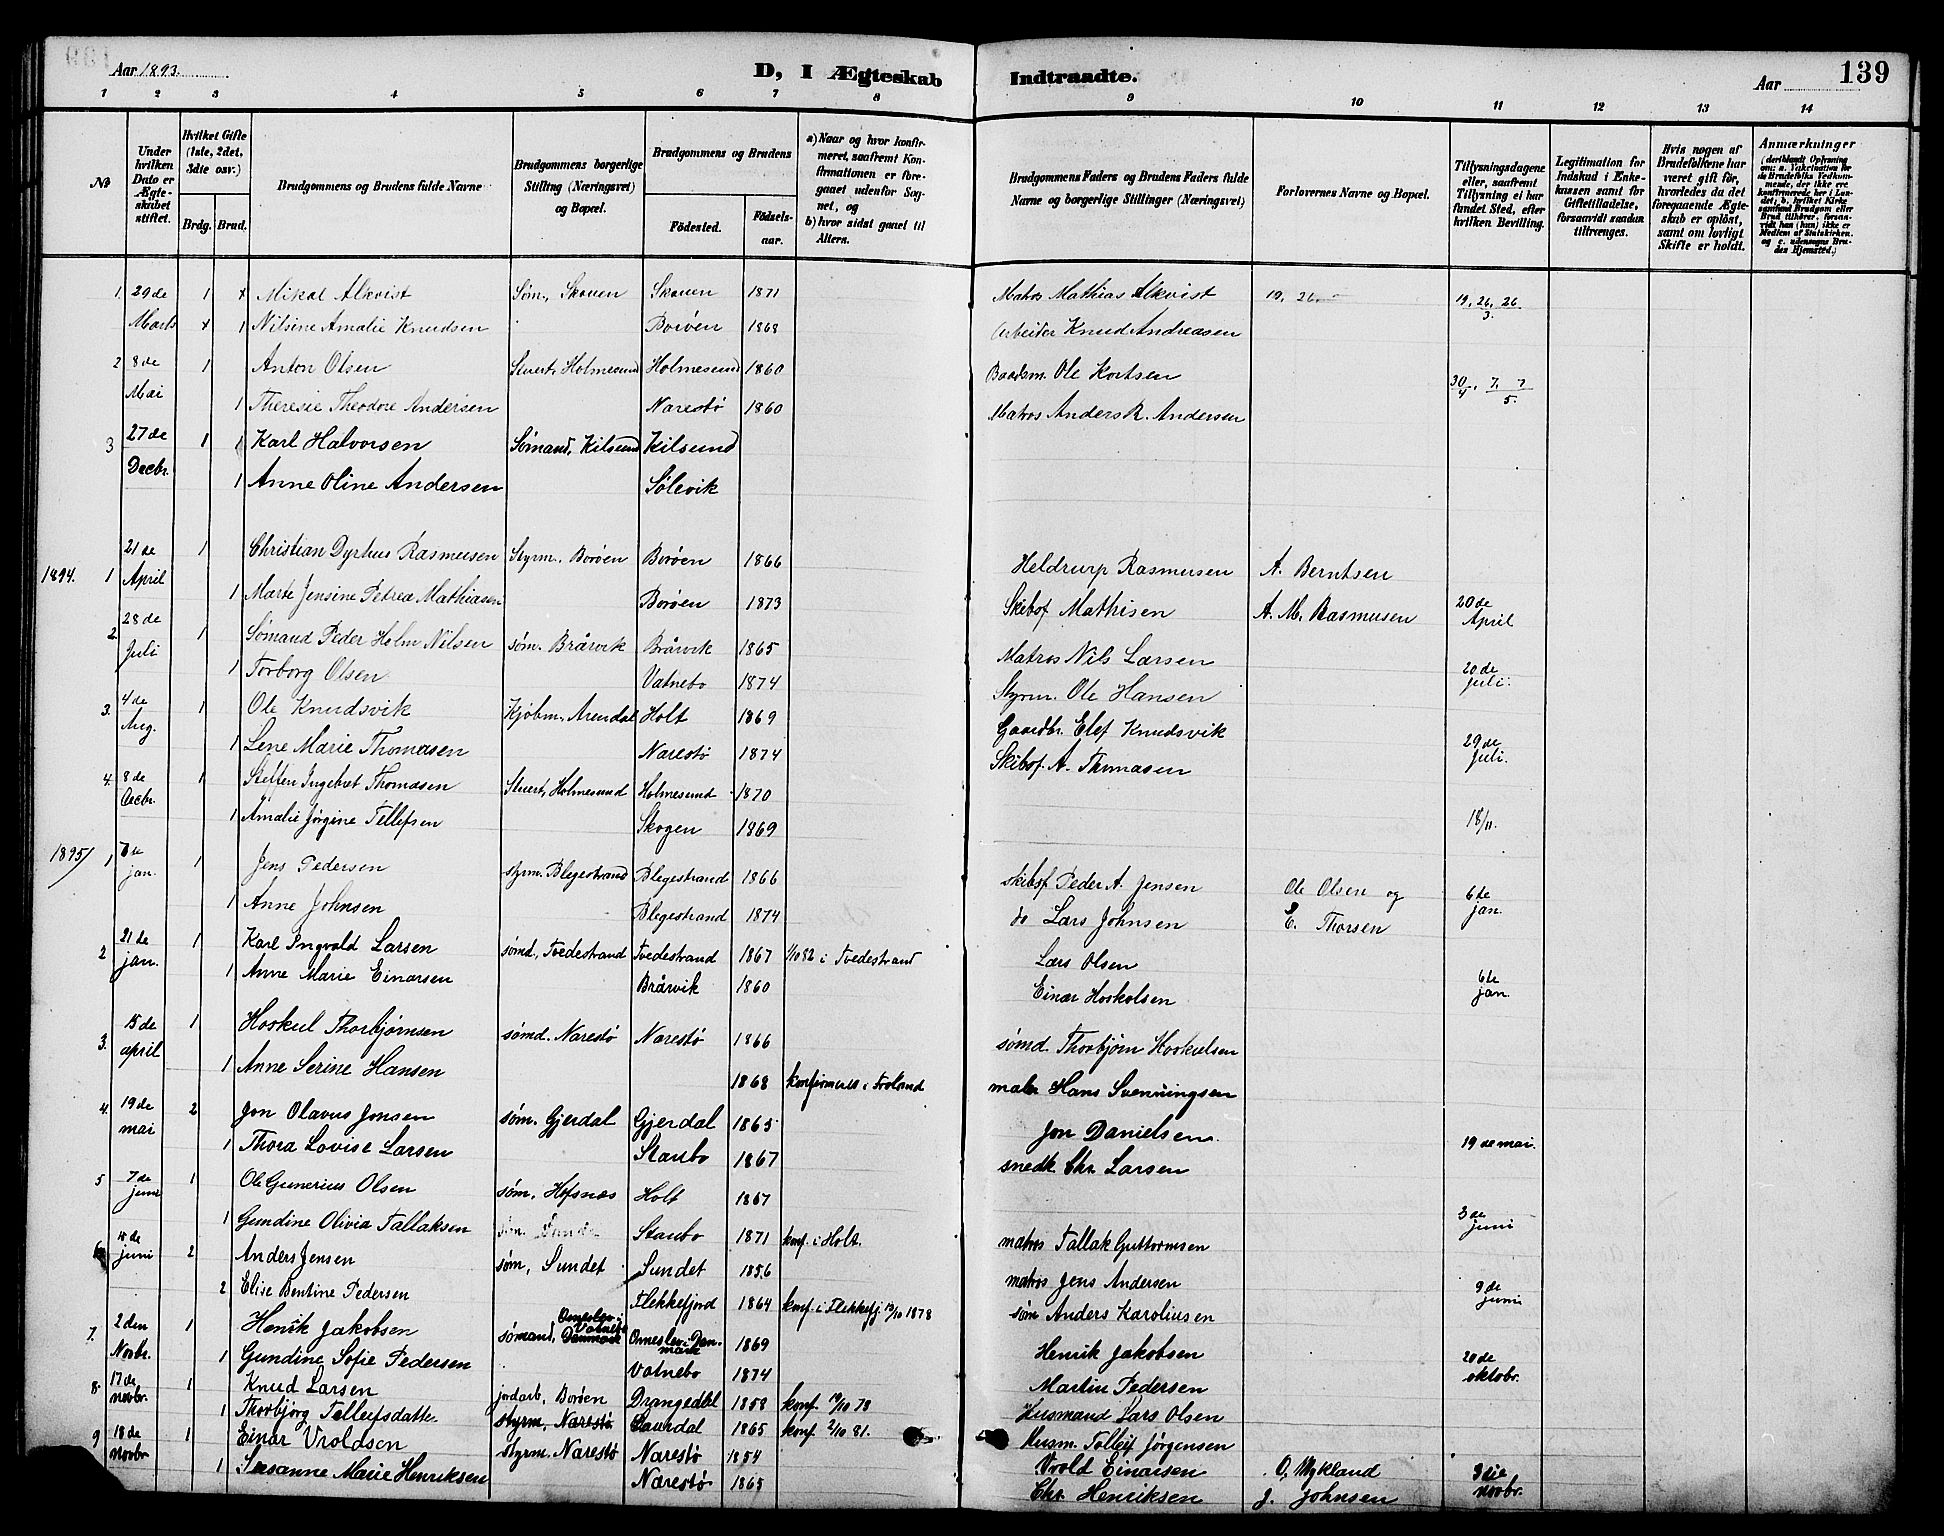 Aar 1893.
D, I Ægteskab Indtraadte.
Aar 139
1 2 3 4 5 6 7 8 9 10 11 12 13 14
No
Under hvilken Dato er Ægteskabet stiftet.
Hvilket Gifte (1ste, 2det, 3dte osv.)
Brdg. Brud.
Brudgommens og Brudens fulde Navne
Brudgommens borgerlige Stilling (Næringsvei) og Bopæl.
Brudgommens og Brudens
Fødested. Fødselsaar.
a) Naar og hvor konfirmeret, saafremt Konfirmationen er foregaaet udenfor Sognet, og
b) hvor sidst gaaet til Alters.
Brudgommens Faders og Brudens Faders fulde Navne og borgerlige Stillinger (Næringsvei)
Forlovernes Navne og Bopæl.
Tillysningsdagene eller, saafremt Tillysning ei har fundet Sted, efter hvilken Bevilling.
Legitimation for Indskud i Enkekassen samt for Giftetilladelse, forsaavidt saadan tiltrænges.
Hvis nogen af Brudefolkene har været gift før, hvorledes da det foregaaende Ægteskab er opløst, samt om lovligt Skifte er holdt.
Anmærkninger
1. 29de Marts 1 x Mikal Alkvist Søm, Skouen Skouen 1871 Matros Mathias Alkvist 19, 26 19, 26, 26/3.
x 1 Nilsine Amalie Knudsen Borøen 1868 Arbeider Knud Andreasen
2 8de Mai 1 Anton Olsen Stuert, Holmesund Holmesund 1860 Baadsm. Ole Kortsen 30/4, 7, 7/5.
1 Theresie Theodore Andersen Narestø 1860 Matros Anders R. Andersen
3 27de Decbr. 1 1 Karl Halvorsen Sømand, Kilsund Kilsund
1 Anne Oline Andersen Sølevik
1894. 1 21de April 1 Christian Dyrhus Rasmusen Styrm, Borøen Borøen 1866 Heldrup Rasmusen A. Berntsen
1 Marte Jensine Petrea Mathiasen Borøen 1873 Skibsf Mathisen A. M. Rasmusen 20de April
2 28de Juli 1 Sømand Peder Holm Nilsen søm. Brårvik Brårvik 1865 Matros Nils Larsen
1 Torborg Olsen Vatnebo 1874 Styrm. Ole Hansen 20de Juli.
3. 4de Aug. 1 Ole Knudsvik Kjøbm, Arendal Holt 1869 Gaardbr. Elef Knudsvik
1 Lene Marie Thomasen Narestø 1874 Skibsf. A. Thomasen 29de Juli.
4. 8de Decbr. 1 Steffen Ingebret Thomasen Stuert, Holmesund Holmesund 1870
1 Amalie Jørgine Tellefsen Skogen 1869 18/11.
1895/ 1 7de jan. 1 Jens Pedersen styrm. Blegestrand Blegestrand 1866 skibsf Peder A. Jensen Ole Olsen og
1 Anne Johnsen Blegestrand 1874 do Lars Johnsen E. Thorsen 6te jan.
2 21de jan. 1 Karl Ingvald Larsen sømd, Tvedestrand Tvedestrand 1867 1/10 82 i Tvedestrand Lars Olsen
1 Anne Marie Einarsen Brårvik 1860 Einar Hoskolsen 6te jan.
3. 15de april 1 Hoskul Thorbjørnsen sømd. Narestø Narestø 1866 sømd Thorbjørn Hoskulsen
1 Anne Serine Hansen 1868 konfirmeret i Froland matr Hans Svenningsen
4. 19de mai 2 Jon Olavus Jonsen søm. Gjerdal Gjerdal 1865 Jon Danielsen
1 Thora Lovise Larsen Staubo 1867 snedk. Chr. Larsen 19de mai.
5 7de juni 1 Ole Gunerius Olsen søm, Hofsnæs Holt 1867
1 Gundine Olivia Tallaksen Staubo 1871 konf. i Holt. matros Tallak Guttormsen 3de juni
6 juni 2 Anders Jensen søm, Sundet Sundet 1856 matros Jens Andersen
2 Elise Bentine Pedersen Flekkefjord 1864 konf. i Flekkefj. 13/10 1878 søm Anders Karoliusen 9de juni
7. 2den Novbr. 1 Henrik Jakobsen sømand, Danmark Vatnebo Omeslev i Danmark 1869 Henrik Jakobsen
1 Gundine Sofie Pedersen Vatnebo 1874 Martin Pedersen 20de oktobr.
8. 17de novbr. 1 Knud Larsen jordarb, Borøen Drangedal 1858 konf. 19/10 73 Husmand Lars Olsen
1 Thorbjørg Telleifsdatter styrm, Narestø Laurdal 1865 konf. 2/10 81. Husm. Tolleif Jørgensen
9 18de novbr 1 Einar Vroldsen styrm. Narestø Narestø 1854 Vrold Einarsen O. Mykland
1 Susanne Marie Henriksen Narestø 1865 Chr. Henriksen J. Johnsen 3die novbr.